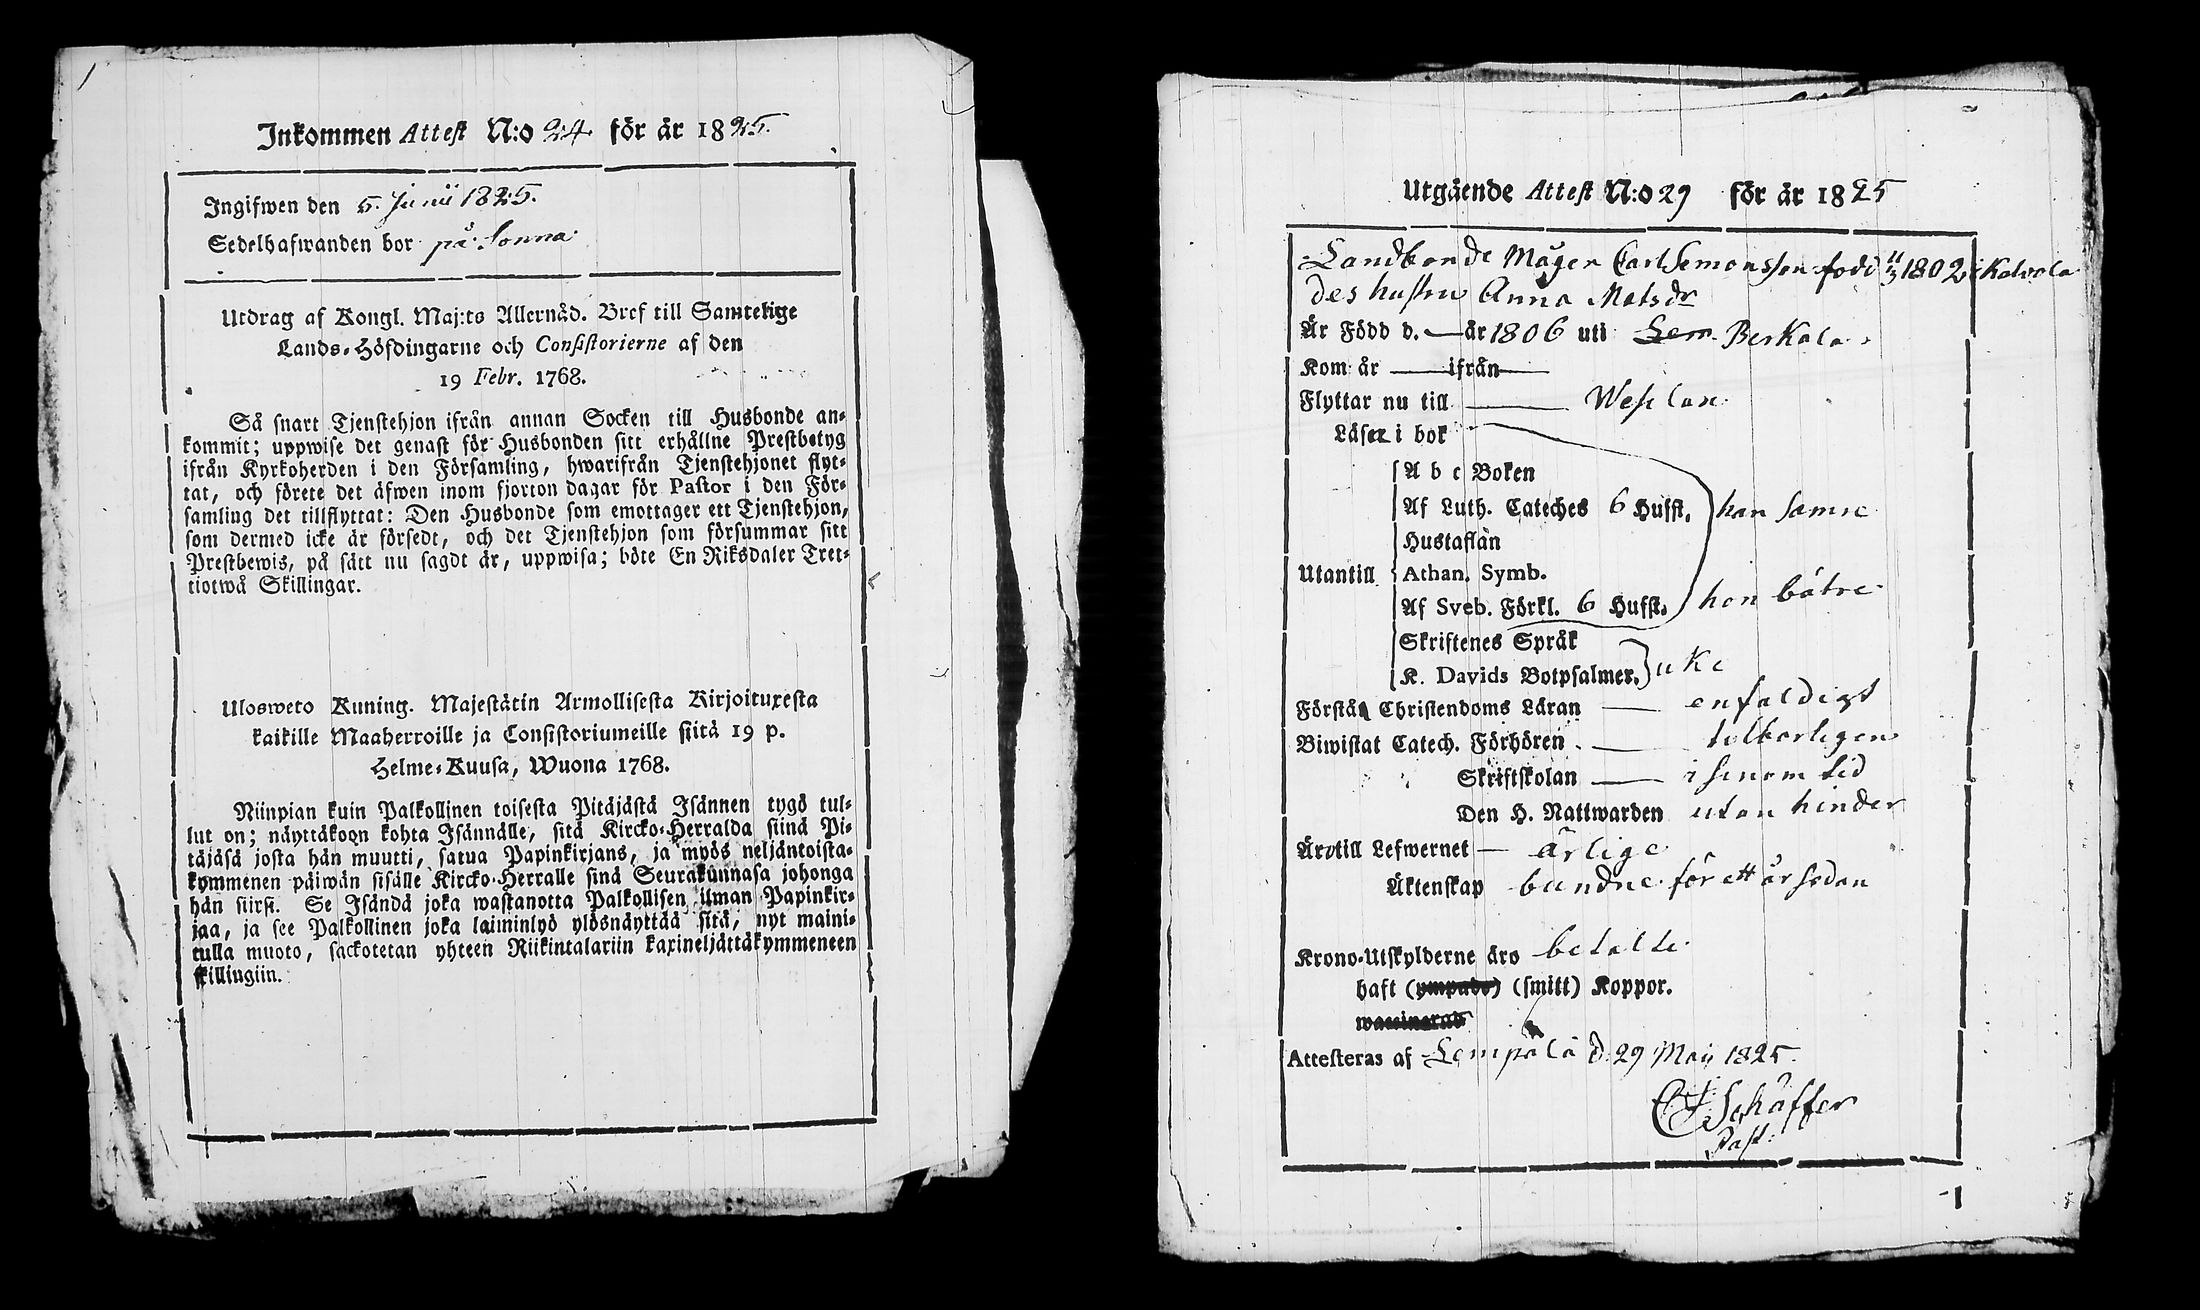 Inkommen Attest N:o 24 för år 1825.
Ingifwen den 5. Junii 1825.
Sedelhafwanden bor på Sonna
Utdrag af Kongl. Maj:ts Allernåd. Bref till Samtelige
Lands-Höfdingarne och Consistorierne af den
19 Febr. 1768.
Så snart Tjenstehjon ifrån annan Socken till Husbonde an-
kommit; uppwise det genast för Husbonden sitt erhållne Prestbetyg
ifrån Kyrkoherden i den Församling, hwarifrån Tjenstehjonet flyt-
tat, och förete det äfwen inom fjorton dagar för Pastor i den För-
samling det tillflyttat: Den Husbonde som emottager ett Tjenstehjon,
som dermed icke är försedt, och det Tjenstehjon som försummar sitt
Prestbewis, på sätt nu sagdt är, uppwisa; böte En Riksdaler Tret-
tiotwå Skillingar.
Ulosweto Kuning. Majestätin Armollisesta Kirjoituxesta
kaikille Maaherroille ja Consistoriumeille siitä 19 p.
Helme-Kuusa, Wuona 1768.
Niinpian kuin Palkollinen toisesta Pitäjästä Isännen tygö tul-
lut on; näyttäkoon kohta Isännälle, sitä Kircko-Herralda siinä Pi-
täjäsä josta hän muutti, satua Papinkirjans, ja myös neljäntoista-
kymmenen päiwän sisälle Kircko-Herralle sinä Seurakunnasa johonga
hän siirsi. Se Isändä joka wastanotta Palkollisen ilman Papinkir-
jaa, ja see Palkollinen joka laiminlyö ylösnäyttää sitä, nyt maini-
tulla muoto, sackotetan yhteen Riikintalariin kaxineljättäkymmeneen
skillingiin.
Utgående Attest N:o 29 för år 1825
Landbonde Mågen Carl Semonsson född 11/3 1802 i Kalvola
des hustru Anna Matsdr
Är Född d. — år 1806 uti Lem. Berkala.
Kom år — ifrån —
Flyttar nu till — Wesilax
Läser i bok
A b c Boken
Af Luth. Cateches 6 Hufst. han sämre
Hustaflan
Utantill Athan. Symb.
Af Sveb. Förkl. 6 Hufst. hon bätre
Skriftenes Språk
K. Davids Botpsalmer. icke
Förstår Christendoms Läran — enfaldigt
Biwistat Catech. Förhören — tilbörligen
Skriftskolan — i sinom tid
Den H. Nattwarden utan hinder
Äro till Lefwernet — ärlige
Äktenskap bundne för ett år sedan
Krono-Utskylderne äro betalte
haft (ympade) (smitt) Koppor.
waccinerad
Attesteras af Lempälä d. 29 Maij 1825.
Schäffer
Past: